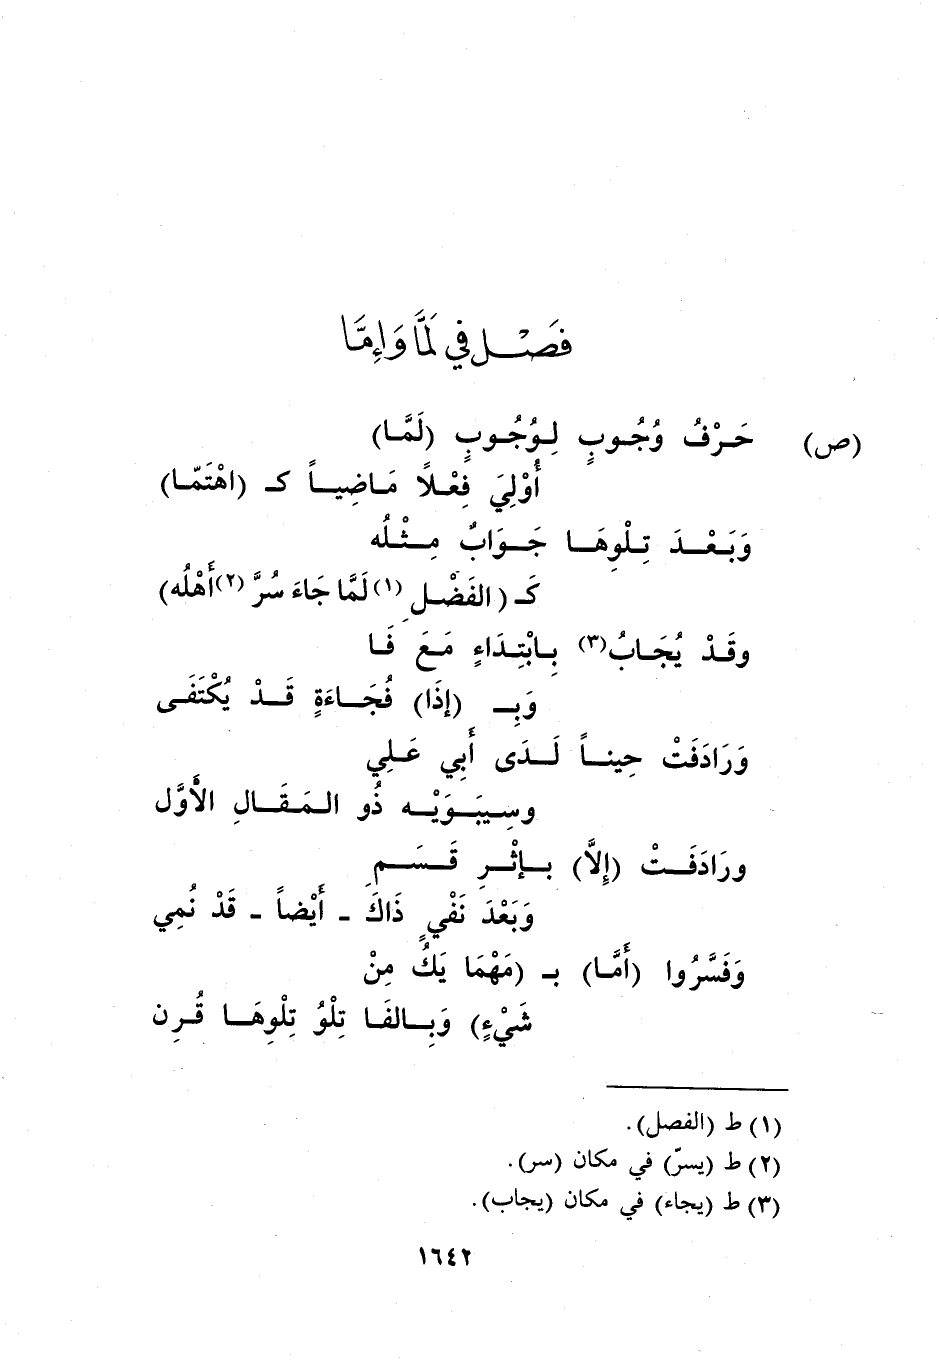 فَصْل في لَمَّا وَإِمَّا
(ص) حَرْفُ وُجُوبٍ لِوُجُوبٍ (لَمَّا)
أُوْلِيَ فِعْلاً مَاضِياً كـ (اهْتَمّا)
وَبَعْدَ تِلْوِهَا جَوَابٌ مِثْلُه
كَـ (الفَضْلِ (١) لَمَّا جَاءَ سُرَّ (٢) أَهْلُه)
وقَدْ يُجَابُ (٣) بِابْتِدَاءٍ مَعَ فَا
وَبِـ (إذَا) فُجَاءَةٍ قَدْ يُكْتَفَى
وَرَادَفَتْ حِيناً لَدَى أَبِي عَلِي
وسِيبَوَيْه ذُو المَقَالِ الأَوَّل
ورَادَفَتْ (إِلاَّ) بإثْرِ قَسَمِ
وَبَعْدَ نَفْيٍ ذَاكَ - أَيْضاً - قَدْ نُمِي
وَفَسَّرُوا (أَمَّا) بـ (مَهْمَا يَكُ مِنْ
شَيْءٍ) وَبِالفَا تِلْوُ تِلْوِهَا قُرِن
(١) ط (الفصل).
(٢) ط (يسرّ) في مكان (سر).
(٣) ط (يجاء) في مكان (يجاب).
١٦٤٢